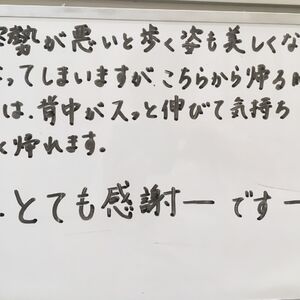 姿勢が悪いと歩く姿も美しくな
ってしまいますが、こちらから帰る
は、背中がスッと伸びて気持ち
く帰れます。
とても感謝ーですー